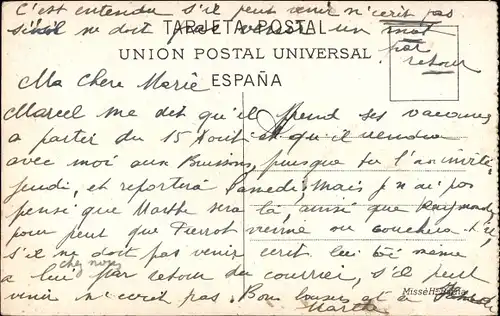 C'est entendu s'il peut venir n'ecrit pas
s'il ne doit pas venir un mot
par
retour
TARJETA POSTAL
UNION POSTAL UNIVERSAL
ESPAÑA
Ma Chere Marie
Marcel me dit qu'il prend ses vacances
a partir du 15 Aout et qu'il viendra
avec moi aux Buissons, puisque tu l'as invité
jeudi, et repartira Samedi, mais je n'ai pas
pensé que Marthe sera là, ainsi que Raymond,
pour peut que Pierrot vienne ou couchera t'il,
s'il ne doit pas venir ecrit lui toi même
a lui chez nous par retour du courrier, s'il peut
venir n'ecrit pas. Bons baisers et a
Marthe